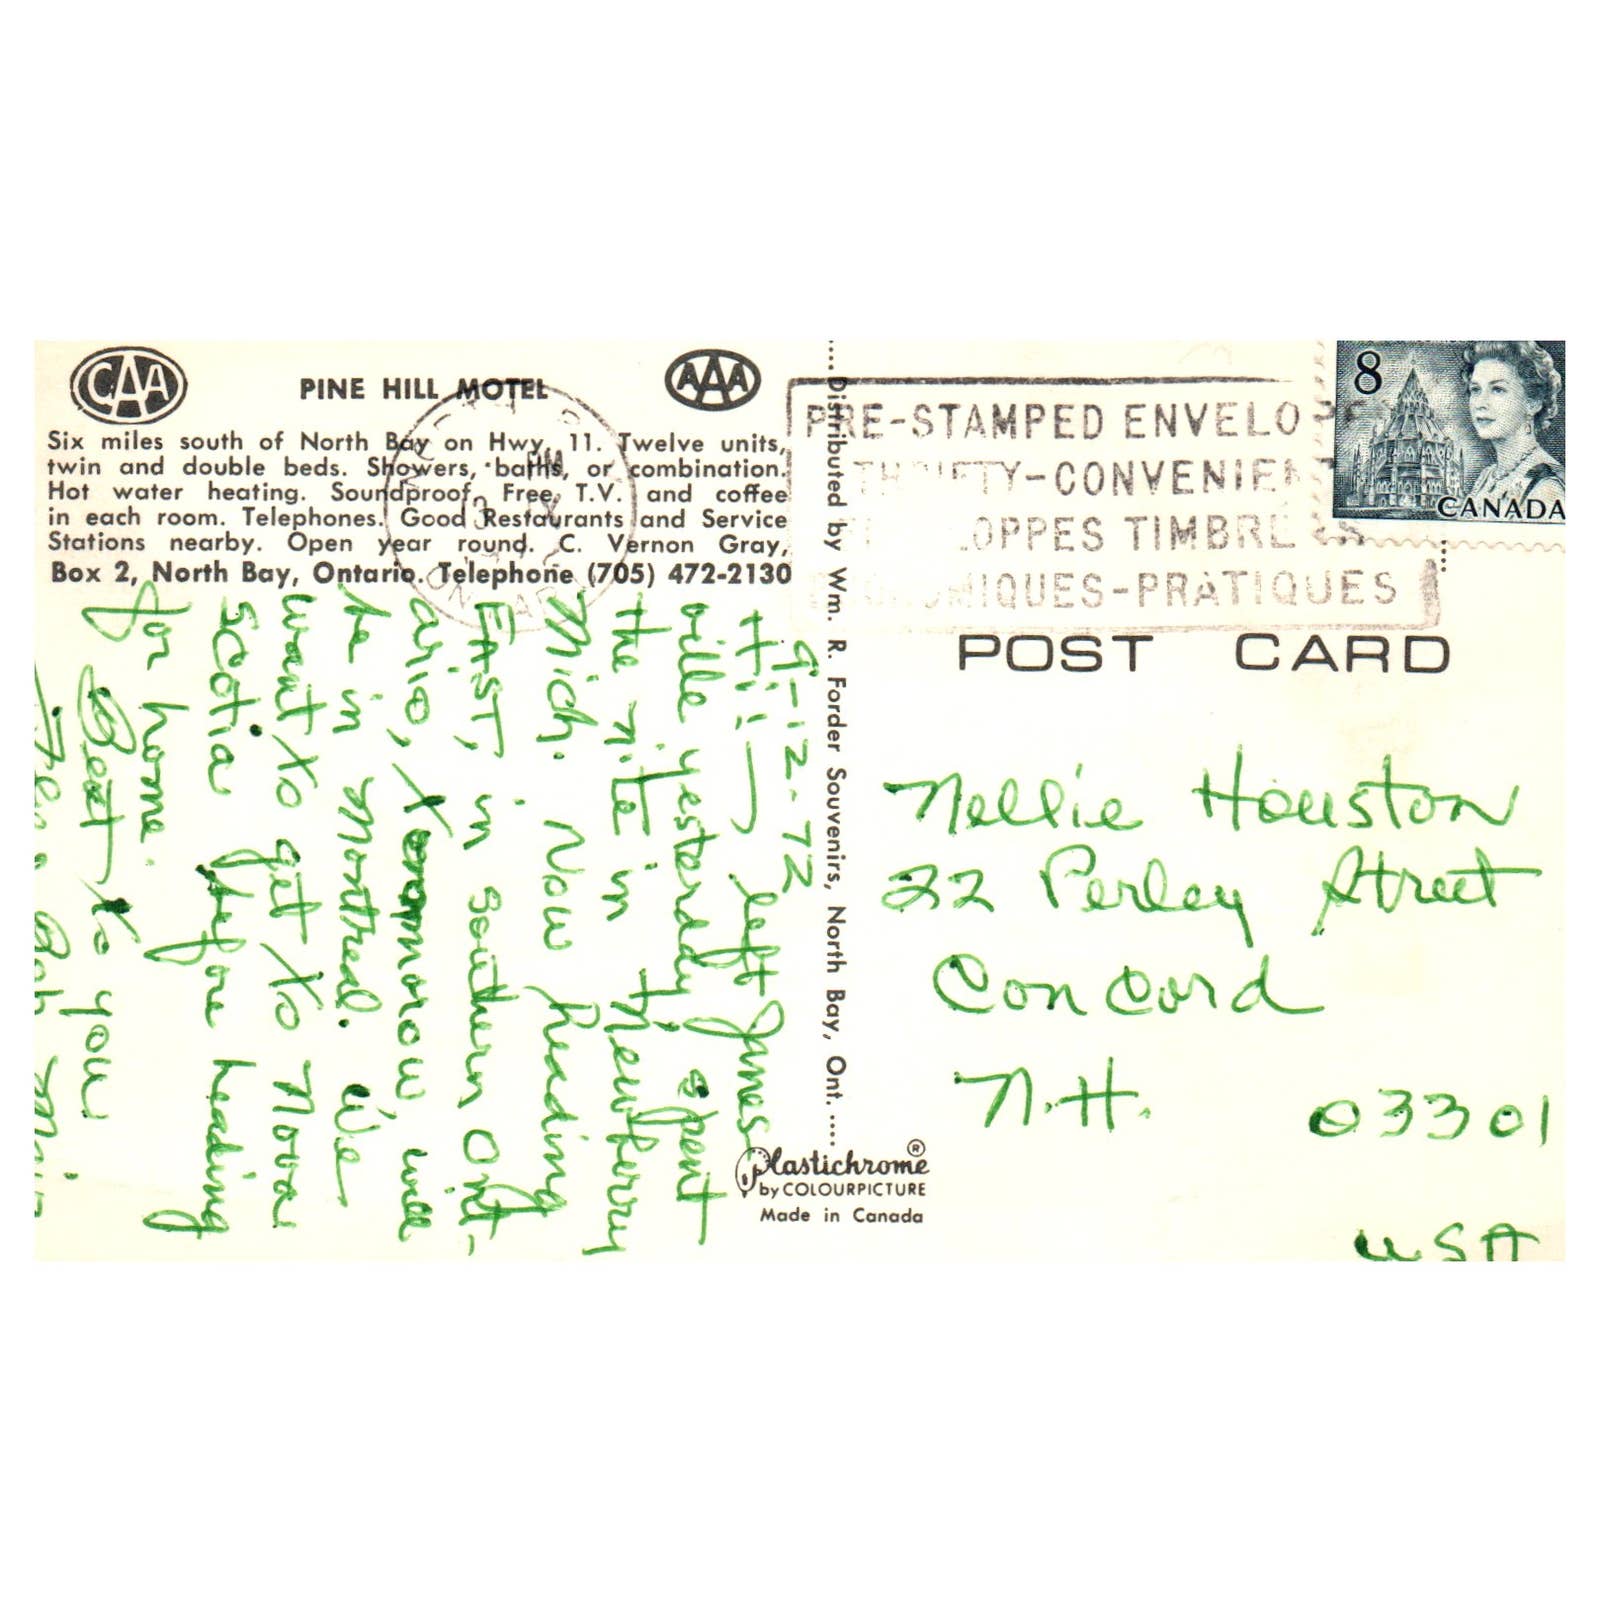 CAA
PINE HILL MOTEL
AAA
Six miles south of North Bay on Hwy. 11. Twelve units,
twin and double beds. Showers, baths, or combination.
Hot water heating. Soundproof. Free T.V. and coffee
in each room. Telephones. Good Restaurants and Service
Stations nearby. Open year round. C. Vernon Gray,
Box 2, North Bay, Ontario. Telephone (705) 472-2130
9-12-72
Hi; left James
ville yesterday, spent
the nite in Newberry
Mich. Now heading
EAST, in southern Ont-
ario, Xomorow will
be in Montreal. We
want Xo get Xo Nova
Scotia before heading
for home.
Best Xo you
Distributed by Wm. R. Forder Souvenirs, North Bay, Ont.
Plastichrome ®
by COLOURPICTURE
Made in Canada
PRE-STAMPED ENVELOP
TH IFTY-CONVENIEN
OPPES TIMBRE ES
MIQUES-PRATIQUES
8
CANADA
POST CARD
Nellie Houston
22 Perley Street
Concord
N.H. 03301
USA